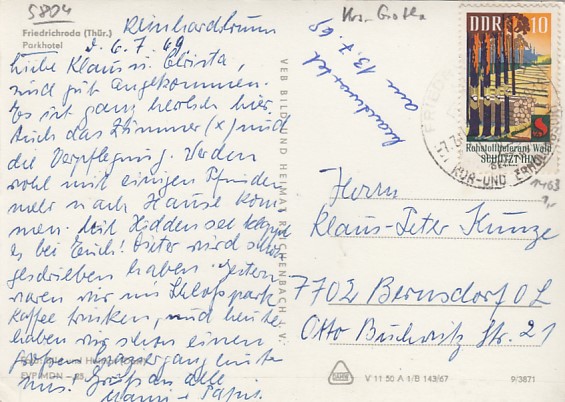 5804
Friedrichroda (Thür.)
Parkhotel
Reinhardsbrunn
d. 6.7.69
Liebe Klaus u. Christa,
sind gut angekommen.
Es ist ganz herrlich hier.
Auch das Zimmer (x) und
die Verpflegung. Werden
wohl mit einigen Pfunden
mehr nach Hause kom-
men. Mit Hiddensee klappt
es bei Euch! Dieter wird schon
geschrieben haben. Gestern
waren wir im Schloßpark
Kaffee trinken, und heute
haben wir schon einen
großen Spaziergang hinter
uns! Grüße an alle
Mami + Papi.
VEB BILD UND HEIMAT REICHENBACH i. V.
Krs. Gotha
beantwortet
am 13.7.69
DDR 10
Rohstofflieferant Wald
SCHÜTZT IHN
KUR-UND
1463
Herrn
Klaus-Peter Kunze
7702 Bernsdorf OL
Otto Buchwitz Str. 21
V 11 50 A 1/B 143/67
9/3871